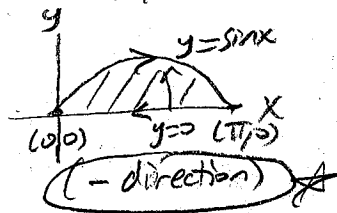 y
y=sinx
x
(0,0) y=0 (π,0)
(- direction)